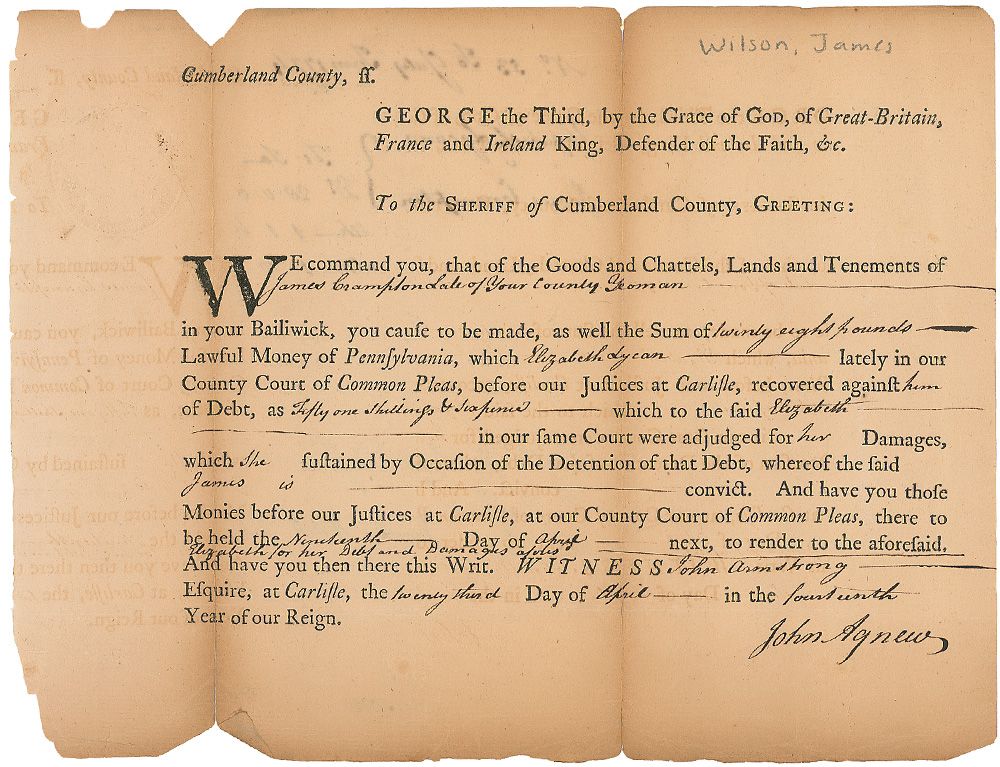 Wilson, James
Cumberland County, ſſ.
GEORGE the Third, by the Grace of GOD, of Great-Britain,
France and Ireland King, Defender of the Faith, &c.
To the SHERIFF of Cumberland County, GREETING:
WE command you, that of the Goods and Chattels, Lands and Tenements of
James Crampton Late of Your County Yeoman
in your Bailiwick, you cauſe to be made, as well the Sum of twenty eight pounds
Lawful Money of Pennſylvania, which Elizabeth Lycan lately in our
County Court of Common Pleas, before our Juſtices at Carliſle, recovered againſt him
of Debt, as Fifty one Shillings & Sixpence which to the ſaid Elizabeth
in our ſame Court were adjudged for her Damages,
which She ſuſtained by Occaſion of the Detention of that Debt, whereof the ſaid
James is convict. And have you thoſe
Monies before our Juſtices at Carliſle, at our County Court of Common Pleas, there to
be held the Nineteenth Day of April next, to render to the aforeſaid.
Elizabeth for her Debt and Damages
And have you then there this Writ. WITNESS John Armstrong
Eſquire, at Carliſle, the twenty third Day of April in the fourteenth
Year of our Reign.
John Agnew